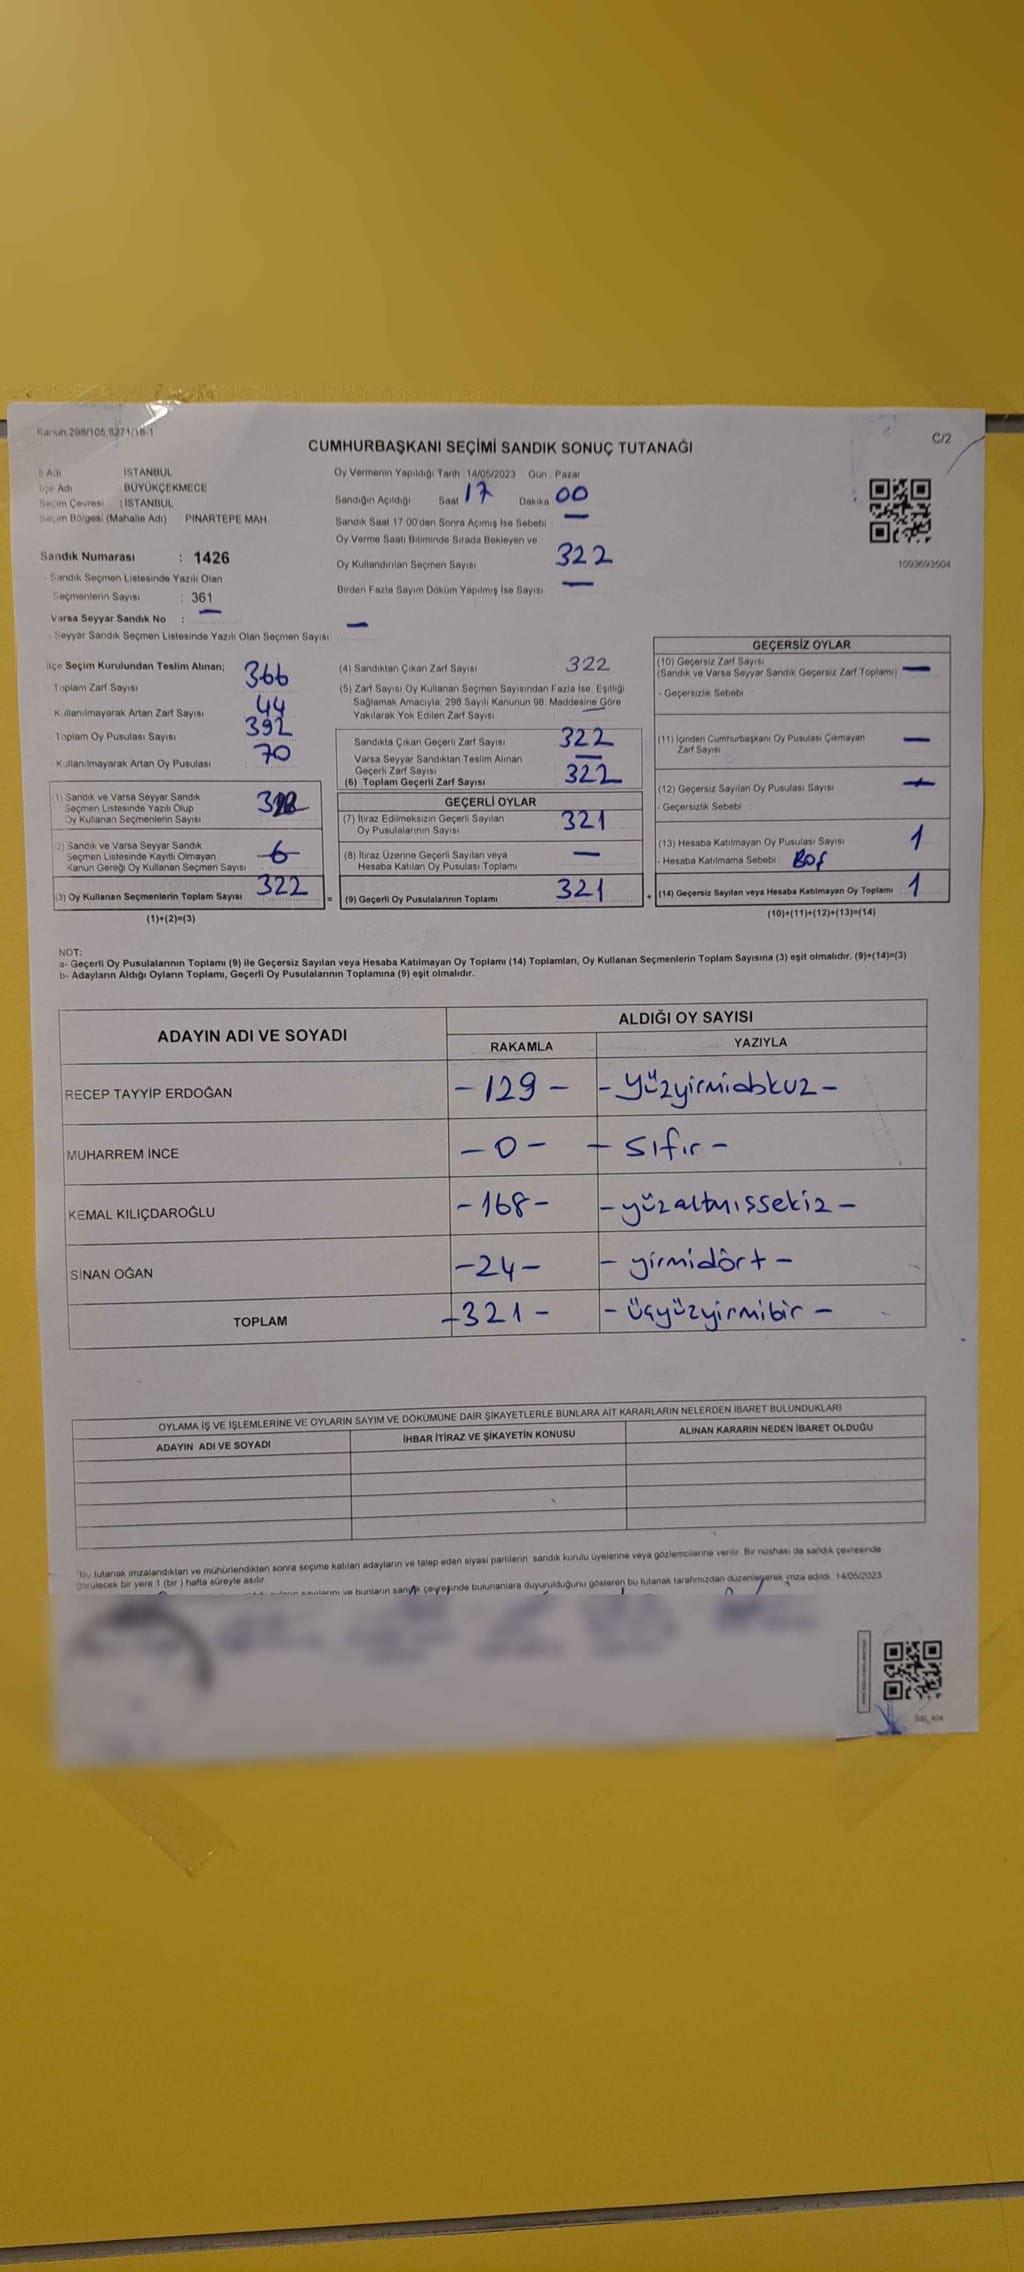 Kanun 298/105,6271/18-1
C/2
CUMHURBAŞKANI SEÇİMİ SANDIK SONUÇ TUTANAĞI
İl Adı : İSTANBUL
İlçe Adı : BÜYÜKÇEKMECE
Seçim Çevresi : İSTANBUL
Seçim Bölgesi (Mahalle Adı) : PINARTEPE MAH.
Sandık Numarası : 1426
- Sandık Seçmen Listesinde Yazılı Olan
Seçmenlerin Sayısı : 361
Varsa Seyyar Sandık No : —
- Seyyar Sandık Seçmen Listesinde Yazılı Olan Seçmen Sayısı: —
Oy Vermenin Yapıldığı Tarih : 14/05/2023 Gün : Pazar
Sandığın Açıldığı Saat 17 Dakika 00
Sandık Saat 17.00'den Sonra Açılmış İse Sebebi —
Oy Verme Saati Bitiminde Sırada Bekleyen ve
Oy Kullandırılan Seçmen Sayısı 322
Birden Fazla Sayım Döküm Yapılmış İse Sayısı —
1093693504
İlçe Seçim Kurulundan Teslim Alınan;
Toplam Zarf Sayısı 366
- Kullanılmayarak Artan Zarf Sayısı 44
- Toplam Oy Pusulası Sayısı 392
- Kullanılmayarak Artan Oy Pusulası 70
(1) Sandık ve Varsa Seyyar Sandık
Seçmen Listesinde Yazılı Olup
Oy Kullanan Seçmenlerin Sayısı
(2) Sandık ve Varsa Seyyar Sandık
Seçmen Listesinde Kayıtlı Olmayan
Kanun Gereği Oy Kullanan Seçmen Sayısı
(3) Oy Kullanan Seçmenlerin Toplam Sayısı 322
(1)+(2)=(3)
(4) Sandıktan Çıkan Zarf Sayısı 322
(5) Zarf Sayısı Oy Kullanan Seçmen Sayısından Fazla İse, Eşitliği
Sağlamak Amacıyla; 298 Sayılı Kanunun 98. Maddesine Göre
Yakılarak Yok Edilen Zarf Sayısı —
Sandıkta Çıkan Geçerli Zarf Sayısı 322
Varsa Seyyar Sandıktan Teslim Alınan
Geçerli Zarf Sayısı —
(6) Toplam Geçerli Zarf Sayısı 322
GEÇERLİ OYLAR
(7) İtiraz Edilmeksizin Geçerli Sayılan
Oy Pusulalarının Sayısı 321
(8) İtiraz Üzerine Geçerli Sayılan veya
Hesaba Katılan Oy Pusulası Toplamı —
= (9) Geçerli Oy Pusulalarının Toplamı 321
GEÇERSİZ OYLAR
(10) Geçersiz Zarf Sayısı
(Sandık ve Varsa Seyyar Sandık Geçersiz Zarf Toplamı) —
- Geçersizlik Sebebi :
(11) İçinden Cumhurbaşkanı Oy Pusulası Çıkmayan
Zarf Sayısı —
(12) Geçersiz Sayılan Oy Pusulası Sayısı —
- Geçersizlik Sebebi :
(13) Hesaba Katılmayan Oy Pusulası Sayısı 1
- Hesaba Katılmama Sebebi : Boş
+ (14) Geçersiz Sayılan veya Hesaba Katılmayan Oy Toplamı : 1
(10)+(11)+(12)+(13)=(14)
NOT:
a- Geçerli Oy Pusulalarının Toplamı (9) ile Geçersiz Sayılan veya Hesaba Katılmayan Oy Toplamı (14) Toplamları, Oy Kullanan Seçmenlerin Toplam Sayısına (3) eşit olmalıdır. (9)+(14)=(3)
b- Adayların Aldığı Oyların Toplamı, Geçerli Oy Pusulalarının Toplamına (9) eşit olmalıdır.
ADAYIN ADI VE SOYADI
ALDIĞI OY SAYISI
RAKAMLA YAZIYLA
RECEP TAYYİP ERDOĞAN - 129 - - Yüzyirmidokuz -
MUHARREM İNCE - 0 - - sıfır -
KEMAL KILIÇDAROĞLU - 168 - - yüzaltmışsekiz -
SİNAN OĞAN - 24 - - yirmidört -
TOPLAM - 321 - - üçyüzyirmibir -
OYLAMA İŞ VE İŞLEMLERİNE VE OYLARIN SAYIM VE DÖKÜMÜNE DAİR ŞİKAYETLERLE BUNLARA AİT KARARLARIN NELERDEN İBARET BULUNDUKLARI
ADAYIN ADI VE SOYADI İHBAR İTİRAZ VE ŞİKAYETİN KONUSU ALINAN KARARIN NEDEN İBARET OLDUĞU
*Bu tutanak imzalandıktan ve mühürlendikten sonra seçime katılan adayların ve talep eden siyasi partilerin sandık kurulu üyelerine veya gözlemcilerine verilir. Bir nüshası da sandık çevresinde
görülecek bir yere 1 (bir) hafta süreyle asılır.
sayılarını ve bunların sandık çevresinde bulunanlara duyurulduğunu gösteren bu tutanak tarafımızdan düzenlenerek imza edildi. 14/05/2023